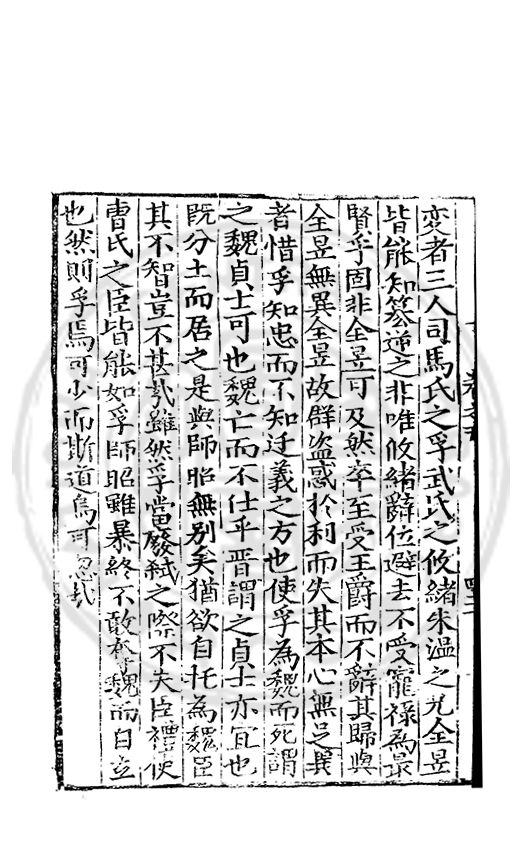 変者三人司馬氏之孚武氏之攸緒朱温之兄全昱
皆能知篡逆之非唯攸緒辭位避去不受寵禄為最
賢孚固非全昱可及然卒至受王爵而不辭其歸與
全昱無異全昱故群盗惑於利而失其本心無足異
者惜孚知忠而不知迁義之方也使孚為魏而死謂
之魏貞士可也魏亡而不仕乎晋謂之貞士亦宜也
既分土而居之是與師昭無别矣猶欲自托為魏臣
其不智豈不甚哉雖然孚當廢弑之際不失臣禮使
曹氏之臣皆能如孚師昭雖暴終不敢奪魏而自立
也然則孚焉可少而斯道烏可忽哉